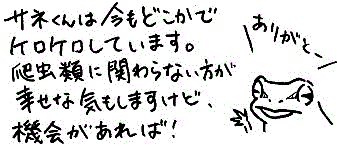 サネくんは今もどこかで
ケロケロしています。
爬虫類に関わらない方が
幸せな気もしますけど、
機会があれば!
ありがとー